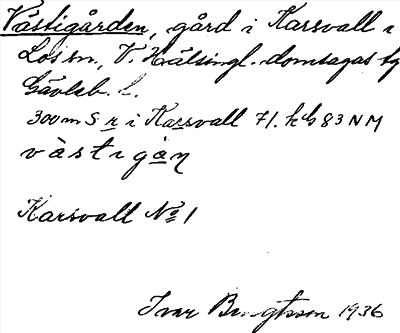 Västigården, gård i Karsvall i
Los sn, V. Hälsingl. domsagas tg
Gävleb. l.
300 m S r i Karsvall 71. k b 83 NM
v ä s t ı g à ṇ
Karsvall No 1
Ivar Bengtsson 1936